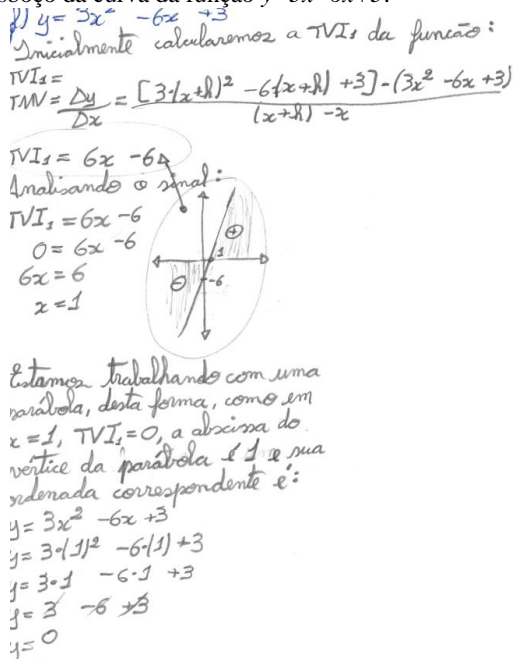 oboço da curva da função y=3x²-6x+3.
f) y = 3x² -6x +3
Inicialmente calcularemos a TVI₁ da função:
TVI₁ =
TMV = Δy/Δx = [3·(x+h)² - 6·(x+h) +3] - (3x² -6x +3) / (x+h) - x
TVI₁ = 6x -6
Analisando o sinal:
TVI₁ = 6x -6
0 = 6x -6
6x = 6
x = 1
+
1
-
-6
Estamos trabalhando com uma
parábola, desta forma, como em
x = 1, TVI₁ = 0, a abscissa do
vértice da parábola é 1 e sua
ordenada correspondente é:
y = 3x² -6x +3
y = 3·(1)² -6·(1) +3
y = 3·1 -6·1 +3
y = 3 -6 +3
y = 0